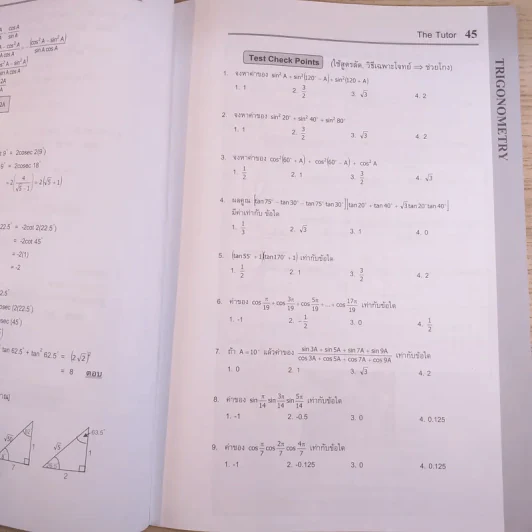 The Tutor 45
TRIGONOMETRY
Test Check Points (ใช้สูตรลัด, วิธีเฉพาะโจทย์ ⇒ ช่วยโกง)
1. จงหาค่าของ sin² A + sin²(120° - A) + sin²(120 + A)
1. 1 2. 3/2 3. √3 4. 2
2. จงหาค่าของ sin² 20° + sin² 40° + sin² 80°
1. 1 2. 3/2 3. √3 4. 2
3. จงหาค่าของ cos²(60° + A) + cos²(60° - A) + cos² A
1. 1/2 2. 1 3. 3/2 4. √3
4. ผลคูณ [tan 75° - tan 30° - tan 75° tan 30°][tan 20° + tan 40° + √3 tan 20° tan 40°]
มีค่าเท่ากับ ข้อใด
1. 1/3 2. √3 3. 1 4. 0
5. (tan 55° + 1)(tan 170° + 1) เท่ากับข้อใด
1. 1/2 2. 1 3. 3/2 4. 2
6. ค่าของ cos π/19 + cos 3π/19 + cos 5π/19 + ... + cos 17π/19 เท่ากับข้อใด
1. -1 2. -1/2 3. 0 4. 1/2
7. ถ้า A = 10° แล้วค่าของ (sin 3A + sin 5A + sin 7A + sin 9A)/(cos 3A + cos 5A + cos 7A + cos 9A) เท่ากับข้อใด
1. 0 2. 1 3. √3 4. 2
8. ค่าของ sin π/14 sin 3π/14 sin 5π/14 เท่ากับข้อใด
1. -1 2. -0.5 3. 0 4. 0.125
9. ค่าของ cos π/7 cos 2π/7 cos 4π/7 เท่ากับข้อใด
1. -1 2. -0.125 3. 0 4. 0.125
= -2cot 2(22.5°)
= -2cot 45
= -2(1)
= -2
tan² 82.5° = (2√3)²
= 8 ตอบ